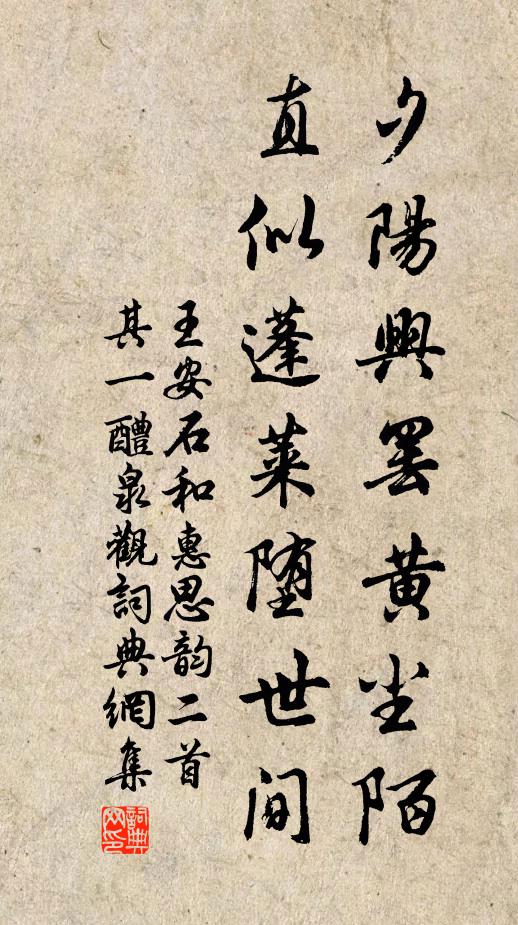 夕陽興罷黄尘陌
直似蓬莱堕世间
王安石和惠思韵二首
其一醴泉觀詞典網集
詞典網印